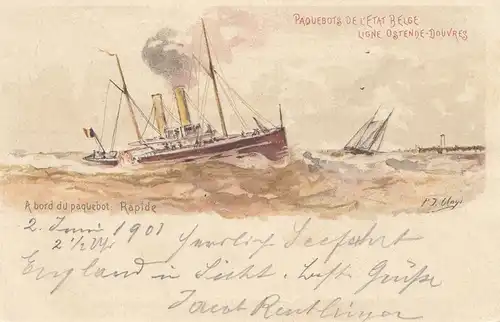 PAQUEBOTS DE L'ETAT BELGE
LIGNE OSTENDE-DOUVRES
A bord du paquebot Rapide
2. Juni 1901
2 1/2 Uhr
Herrlich Seefahrt
England in Sicht.
Grüße
Jacob Reutlinger